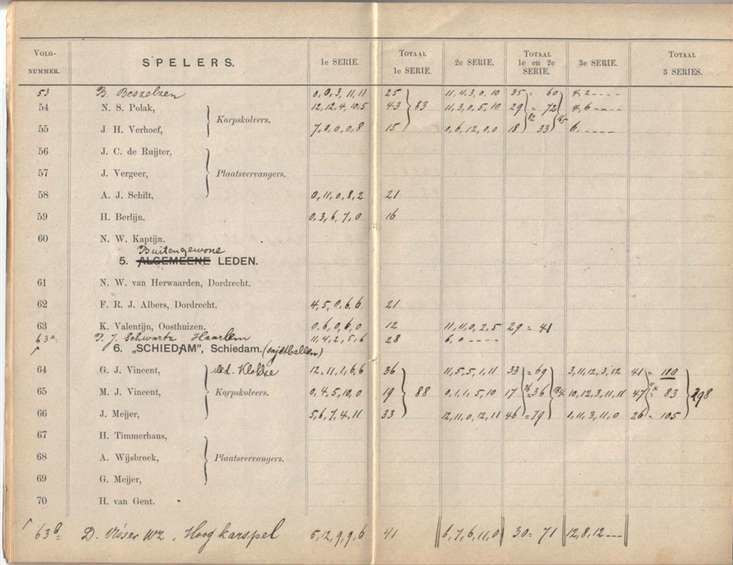 VOLG-NUMMER. SPELERS. 1e SERIE. TOTAAL 1e SERIE. 2e SERIE. TOTAAL 1e en 2e SERIE. 3e SERIE. TOTAAL 3 SERIES.
53 B. 0, 0, 3, 11, 11 25 11, 11, 3, 0, 10 35 = 60 4, 2 - - - -
54 N. S. Polak, 12, 12, 4, 10, 5 43 11, 3, 0, 5, 10 29 = 72 4, 6 - - - -
Korpskolvers. 83
55 J. H. Verhoef, 7, 0, 0, 0, 8 15 0, 6, 12, 0, 0 18 33 6, - - - -
56 J. C. de Ruijter,
57 J. Vergeer, Plaatsvervangers.
58 A. J. Schilt, 0, 11, 0, 8, 2 21
59 H. Berlijn. 0, 3, 6, 7, 0 16
60 N. W. Kaptijn.
Buitengewone
5. ALGEMEENE LEDEN.
61 N. W. van Herwaarden, Dordrecht.
62 F. R. J. Albers, Dordrecht. 4, 5, 0, 6, 6 21
63 K. Valentijn, Oosthuizen. 0, 6, 0, 6, 0 12 11, 11, 0, 2, 5 29 = 41
63a. Schwartz Haarlem 11, 4, 2, 5, 6 28 6, 0 - - - -
6. „SCHIEDAM", Schiedam.
64 G. J. Vincent, 12, 11, 1, 6, 6 36 11, 5, 5, 1, 11 33 = 69 3, 11, 12, 3, 12 41 = 110
65 M. J. Vincent, Korpskolvers. 0, 4, 5, 10, 0 19 88 0, 1, 1, 5, 10 17 = 36 10, 12, 3, 11, 11 47 = 83 298
66 J. Meijer, 5, 6, 7, 4, 11 33 12, 11, 0, 12, 11 46 = 79 1, 11, 3, 11, 0 26 = 105
67 H. Timmerhuis,
68 A. Wijsbroek, Plaatsvervangers.
69 G. Meijjer,
70 H. van Gent.
63b. D. Visser Wz, Hoogkarspel 5, 12, 9, 9, 6 41 6, 7, 6, 11, 0 30 = 71 12, 8, 12 - -